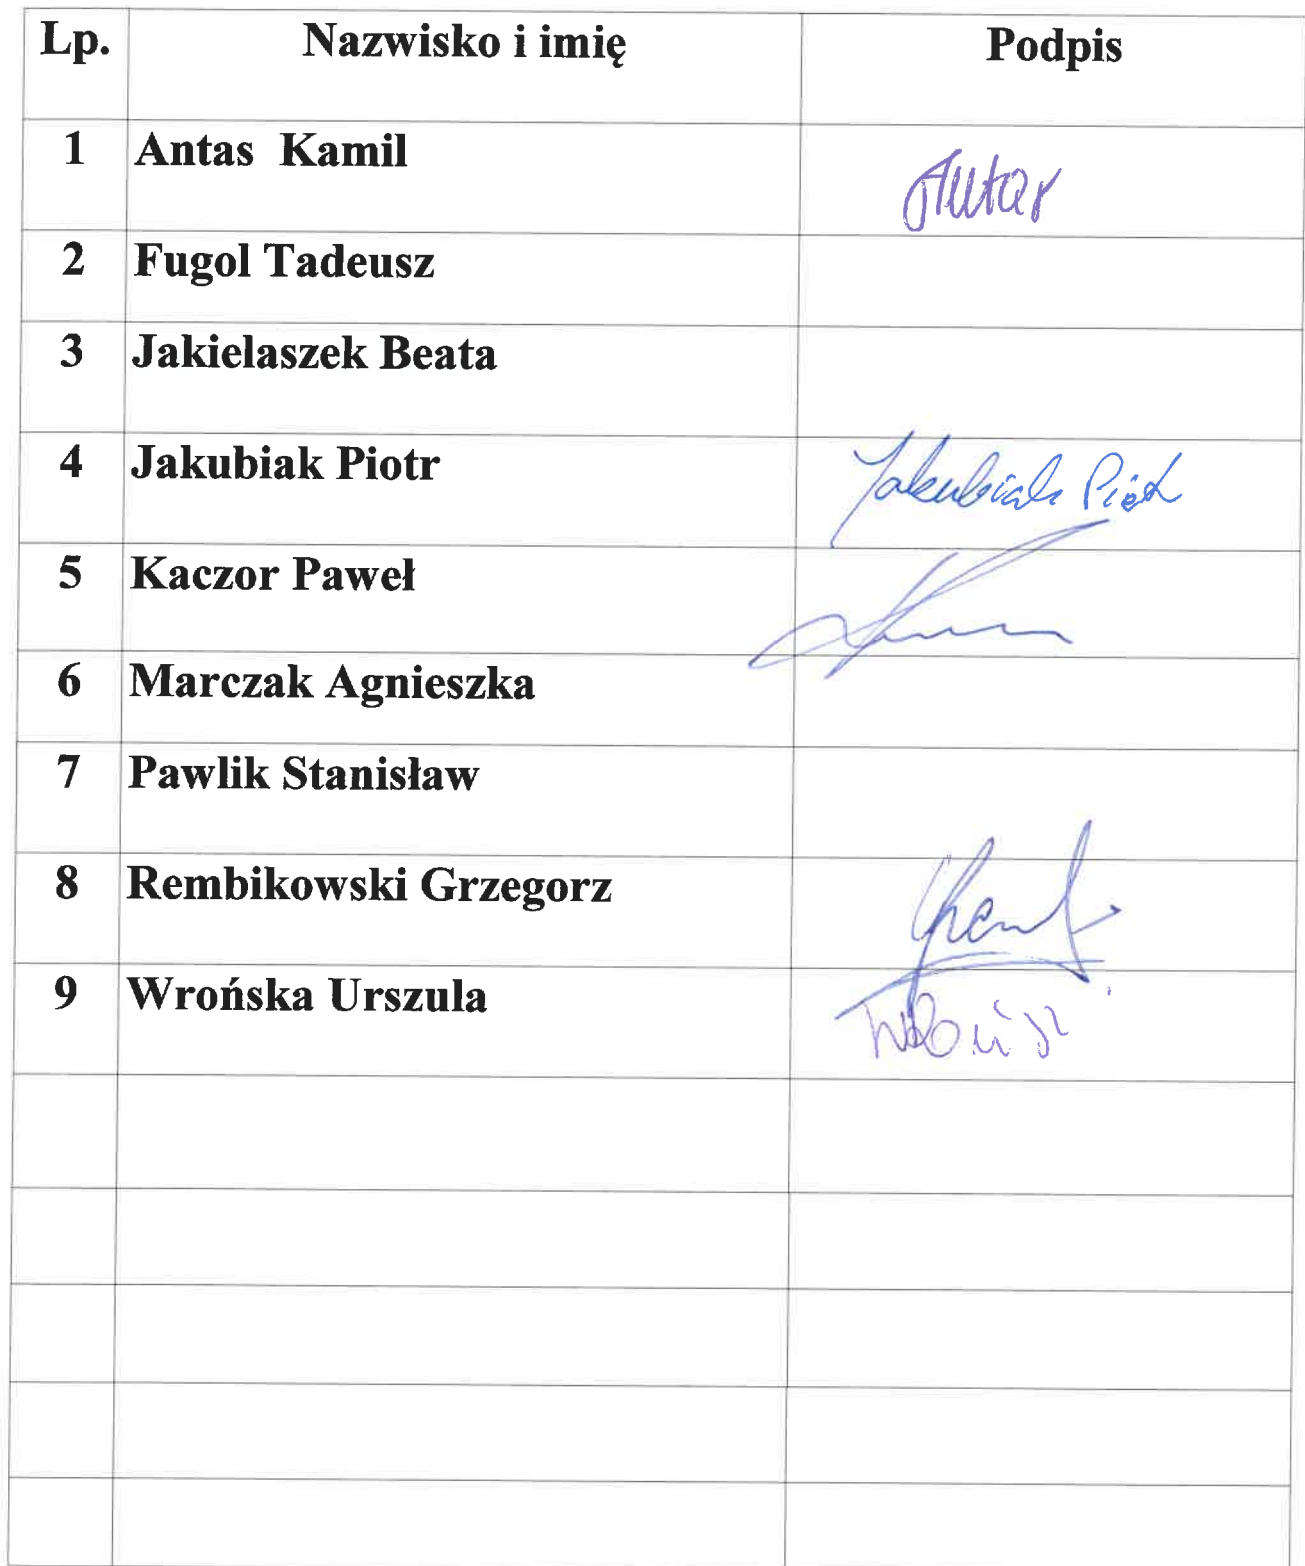 Lp. Nazwisko i imię Podpis
1 Antas Kamil
2 Fugol Tadeusz
3 Jakielaszek Beata
4 Jakubiak Piotr Jakubiak Piotr
5 Kaczor Paweł
6 Marczak Agnieszka
7 Pawlik Stanisław
8 Rembikowski Grzegorz
9 Wrońska Urszula